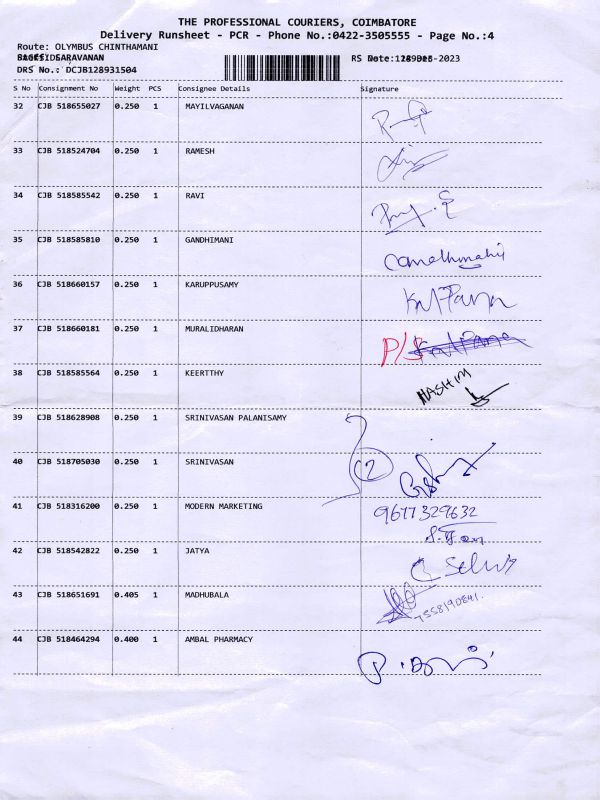 THE PROFESSIONAL COURIERS, COIMBATORE
Delivery Runsheet - PCR - Phone No.:0422-3505555 - Page No.:4
Route: OLYMBUS CHINTHAMANI
SARAVANAN
RS Date: -2023
DRS No.: DCJB128931504
S No Consignment No Weight PCS Consignee Details Signature
32 CJB 518655027 0.250 1 MAYILVAGANAN
33 CJB 518524704 0.250 1 RAMESH
34 CJB 518585542 0.250 1 RAVI
35 CJB 518585810 0.250 1 GANDHIMANI
36 CJB 518660157 0.250 1 KARUPPUSAMY
37 CJB 518660181 0.250 1 MURALIDHARAN P/S
38 CJB 518585564 0.250 1 KEERTTHY HASHIM
39 CJB 518628908 0.250 1 SRINIVASAN PALANISAMY
40 CJB 518705030 0.250 1 SRINIVASAN 2
41 CJB 518316200 0.250 1 MODERN MARKETING 9677329632
42 CJB 518542822 0.250 1 JATYA
43 CJB 518651691 0.405 1 MADHUBALA
44 CJB 518464294 0.400 1 AMBAL PHARMACY